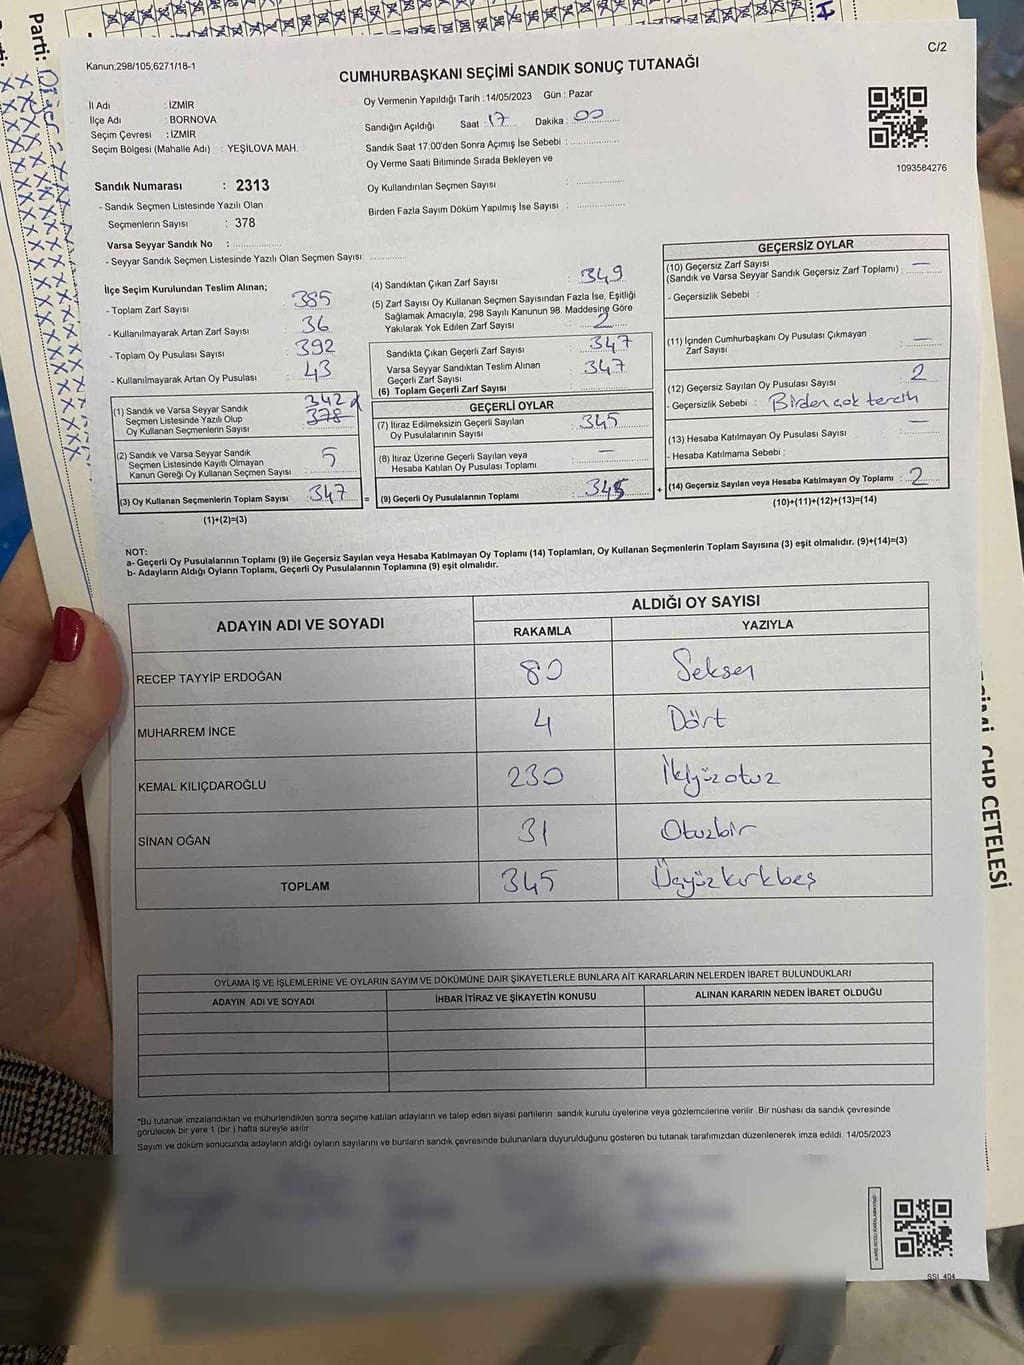 Parti: Diğer
C/2
Kanun;298/105;6271/18-1
CUMHURBAŞKANI SEÇİMİ SANDIK SONUÇ TUTANAĞI
İl Adı : İZMİR
İlçe Adı : BORNOVA
Seçim Çevresi : İZMİR
Seçim Bölgesi (Mahalle Adı) : YEŞİLOVA MAH.
Oy Vermenin Yapıldığı Tarih : 14/05/2023 Gün : Pazar
Sandığın Açıldığı Saat : 17 Dakika : 00
Sandık Saat 17:00'den Sonra Açımış İse Sebebi :
Oy Verme Saati Bitiminde Sırada Bekleyen ve
Oy Kullandırılan Seçmen Sayısı :
Birden Fazla Sayım Döküm Yapılmış İse Sayısı :
1093584276
Sandık Numarası : 2313
- Sandık Seçmen Listesinde Yazılı Olan
Seçmenlerin Sayısı : 378
Varsa Seyyar Sandık No :
- Seyyar Sandık Seçmen Listesinde Yazılı Olan Seçmen Sayısı:
İlçe Seçim Kurulundan Teslim Alınan;
- Toplam Zarf Sayısı : 385
- Kullanılmayarak Artan Zarf Sayısı : 36
- Toplam Oy Pusulası Sayısı : 392
- Kullanılmayarak Artan Oy Pusulası : 43
(1) Sandık ve Varsa Seyyar Sandık
Seçmen Listesinde Yazılı Olup
Oy Kullanan Seçmenlerin Sayısı : 342 378
(2) Sandık ve Varsa Seyyar Sandık
Seçmen Listesinde Kayıtlı Olmayan
Kanun Gereği Oy Kullanan Seçmen Sayısı : 5
(3) Oy Kullanan Seçmenlerin Toplam Sayısı : 347 =
(1)+(2)=(3)
(4) Sandıktan Çıkan Zarf Sayısı : 349
(5) Zarf Sayısı Oy Kullanan Seçmen Sayısından Fazla İse, Eşitliği
Sağlamak Amacıyla; 298 Sayılı Kanunun 98. Maddesine Göre
Yakılarak Yok Edilen Zarf Sayısı : 2
Sandıkta Çıkan Geçerli Zarf Sayısı : 347
Varsa Seyyar Sandıktan Teslim Alınan
Geçerli Zarf Sayısı : 347
(6) Toplam Geçerli Zarf Sayısı :
GEÇERLİ OYLAR
(7) İtiraz Edilmeksizin Geçerli Sayılan
Oy Pusulalarının Sayısı : 345
(8) İtiraz Üzerine Geçerli Sayılan veya
Hesaba Katılan Oy Pusulası Toplamı : —
(9) Geçerli Oy Pusulalarının Toplamı : 345 +
GEÇERSİZ OYLAR
(10) Geçersiz Zarf Sayısı
(Sandık ve Varsa Seyyar Sandık Geçersiz Zarf Toplamı) : —
- Geçersizlik Sebebi :
(11) İçinden Cumhurbaşkanı Oy Pusulası Çıkmayan
Zarf Sayısı : —
(12) Geçersiz Sayılan Oy Pusulası Sayısı : 2
- Geçersizlik Sebebi : Birden çok tercih
(13) Hesaba Katılmayan Oy Pusulası Sayısı : —
- Hesaba Katılmama Sebebi :
(14) Geçersiz Sayılan veya Hesaba Katılmayan Oy Toplamı : 2
(10)+(11)+(12)+(13)=(14)
NOT:
a- Geçerli Oy Pusulalarının Toplamı (9) ile Geçersiz Sayılan veya Hesaba Katılmayan Oy Toplamı (14) Toplamları, Oy Kullanan Seçmenlerin Toplam Sayısına (3) eşit olmalıdır. (9)+(14)=(3)
b- Adayların Aldığı Oyların Toplamı, Geçerli Oy Pusulalarının Toplamına (9) eşit olmalıdır.
ADAYIN ADI VE SOYADI
ALDIĞI OY SAYISI
RAKAMLA YAZIYLA
RECEP TAYYİP ERDOĞAN 80 Seksen
MUHARREM İNCE 4 Dört
KEMAL KILIÇDAROĞLU 230 İkiyüzotuz
SİNAN OĞAN 31 Otuzbir
TOPLAM 345 Üçyüzkırkbeş
CHP CETELESİ
OYLAMA İŞ VE İŞLEMLERİNE VE OYLARIN SAYIM VE DÖKÜMÜNE DAİR ŞİKAYETLERLE BUNLARA AİT KARARLARIN NELERDEN İBARET BULUNDUKLARI
ADAYIN ADI VE SOYADI İHBAR İTİRAZ VE ŞİKAYETİN KONUSU ALINAN KARARIN NEDEN İBARET OLDUĞU
*Bu tutanak imzalandıktan ve mühürlendikten sonra seçime katılan adayların ve talep eden siyasi partilerin sandık kurulu üyelerine veya gözlemcilerine verilir .Bir nüshası da sandık çevresinde
görülecek bir yere 1 (bir ) hafta süreyle asılır
Sayım ve döküm sonucunda adayların aldığı oyların sayılarını ve bunların sandık çevresinde bulunanlara duyurulduğunu gösteren bu tutanak tarafımızdan düzenlenerek imza edildi. 14/05/2023
SSI_404